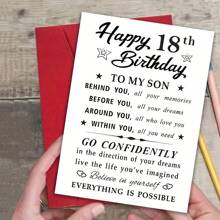 Happy 18th
Birthday
TO MY SON
BEHIND YOU, all your memories
BEFORE YOU, all your dreams
AROUND YOU, all who love you
WITHIN YOU, all you need
GO CONFIDENTLY
in the direction of your dreams
live the life you've imagined
Believe in yourself
EVERYTHING IS POSSIBLE